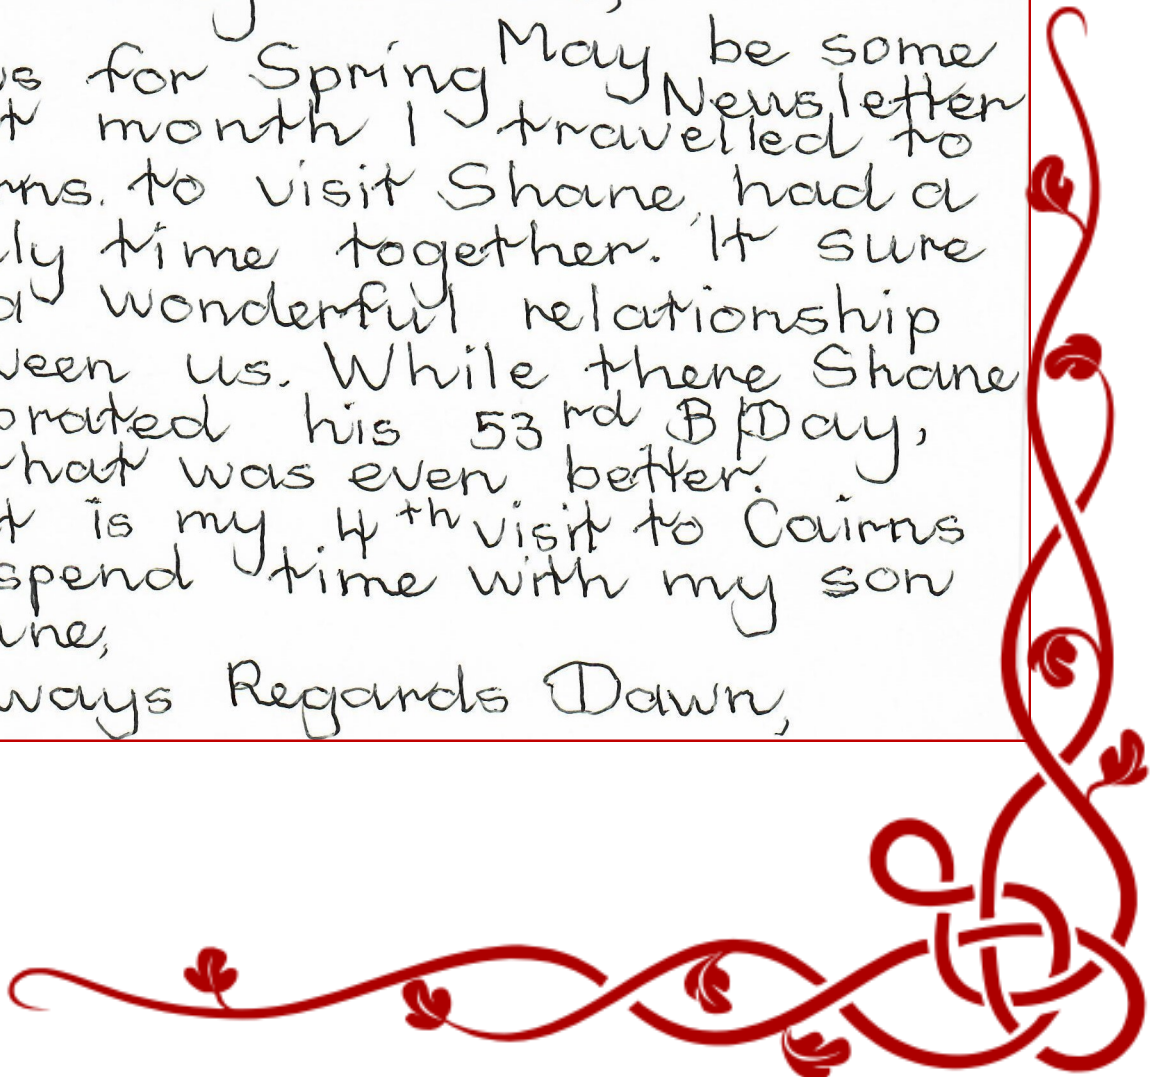 May be some
us for Spring Newsletter
t month I travelled to
rns. to visit Shane, had a
ly time together. It sure
a wonderful relationship
ween us. While there Shane
brated his 53rd B/Day,
hat was even better.
t is my 4th visit to Cairns
spend time with my son
ane,
ways Regards Dawn,